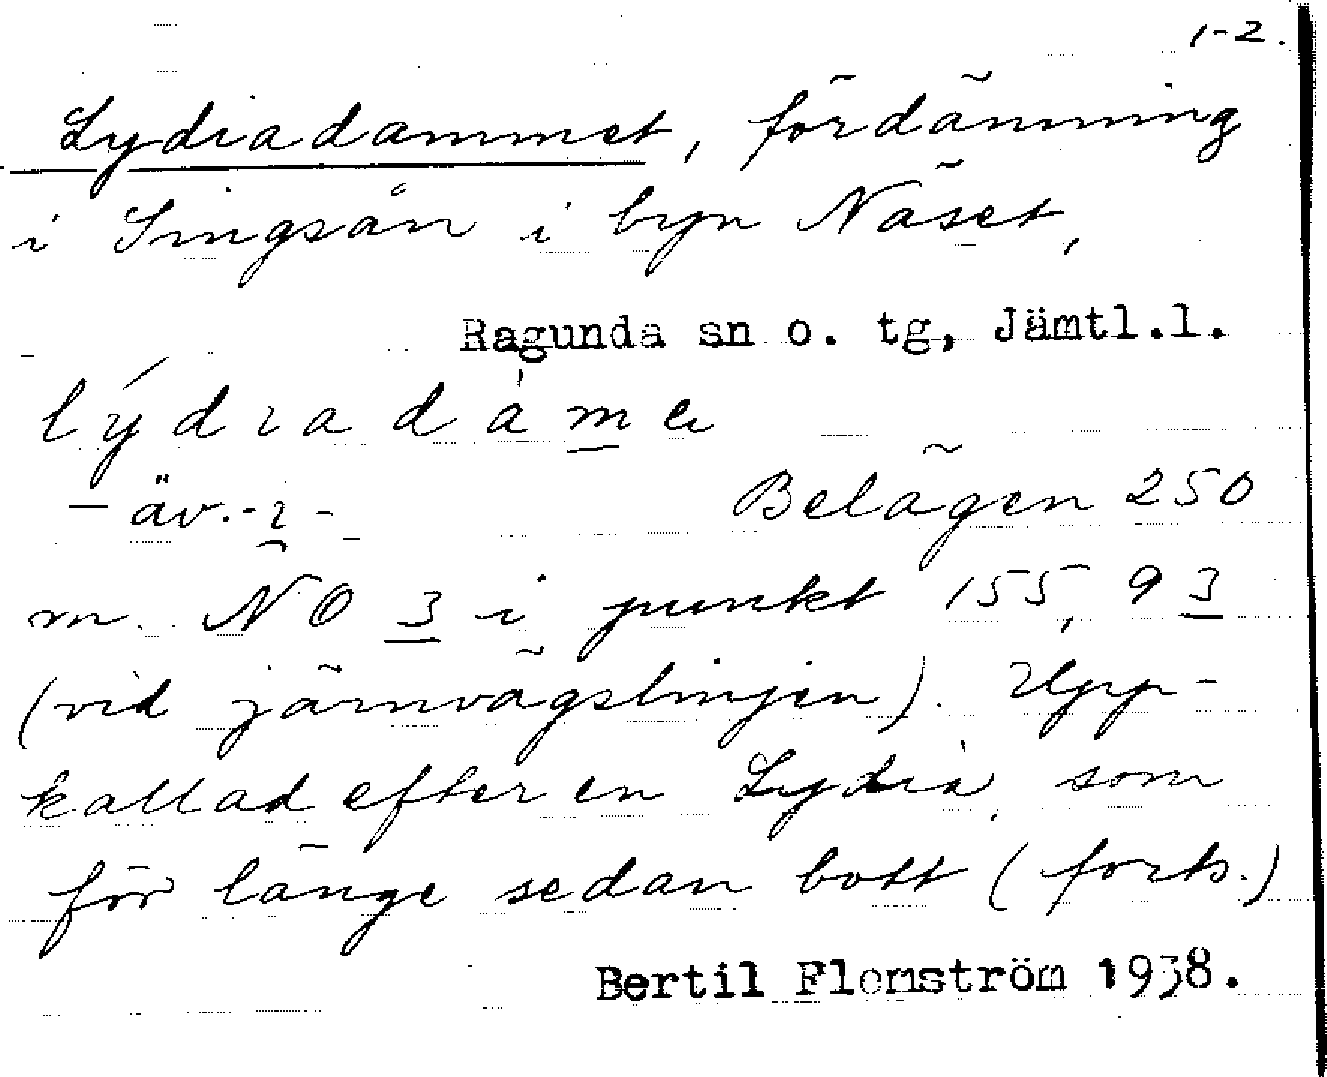 1-2.
Lydiadammet, fördämning
i Singsån i byn Näset,
Ragunda sn o. tg, Jämtl.l.
- äv. -ı-
Belägen 250
m. NO 3 i punkt 155,93
(vid järnvägslinjen). Upp-
kallad efter en Lydia, som
för länge sedan bott (forts.)
Bertil Flemström 1938.